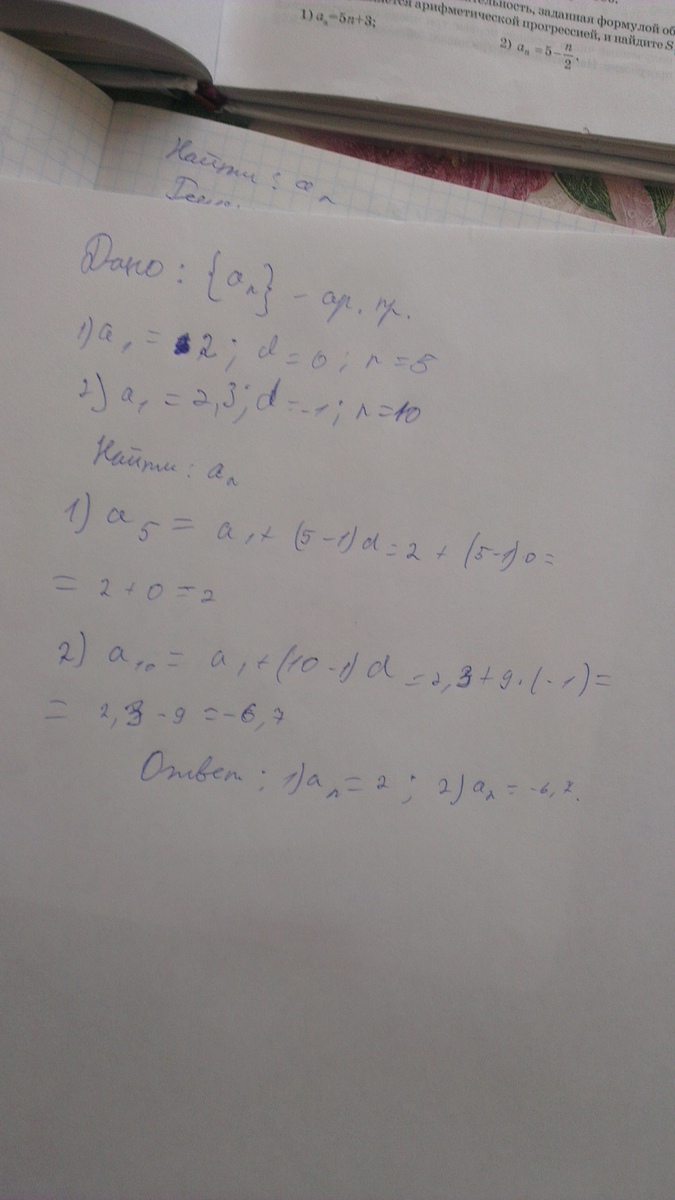 тельность, заданная формулой об
является арифметической прогрессией, и найдите S
1) aₙ=5n+3;
2) aₙ=5−n/2.
Найти: aₙ
Дано: {aₙ} – ар. пр.
1) a₁ = 2; d = 0; n = 5
2) a₁ = 2,3; d = -1; n = 10
Найти: aₙ
1) a₅ = a₁ + (5-1)d = 2 + (5-1)0 =
= 2 + 0 = 2
2) a₁₀ = a₁ + (10-1)d = 2,3 + 9·(-1) =
= 2,3 - 9 = -6,7
Ответ: 1) aₙ = 2; 2) aₙ = -6,7.